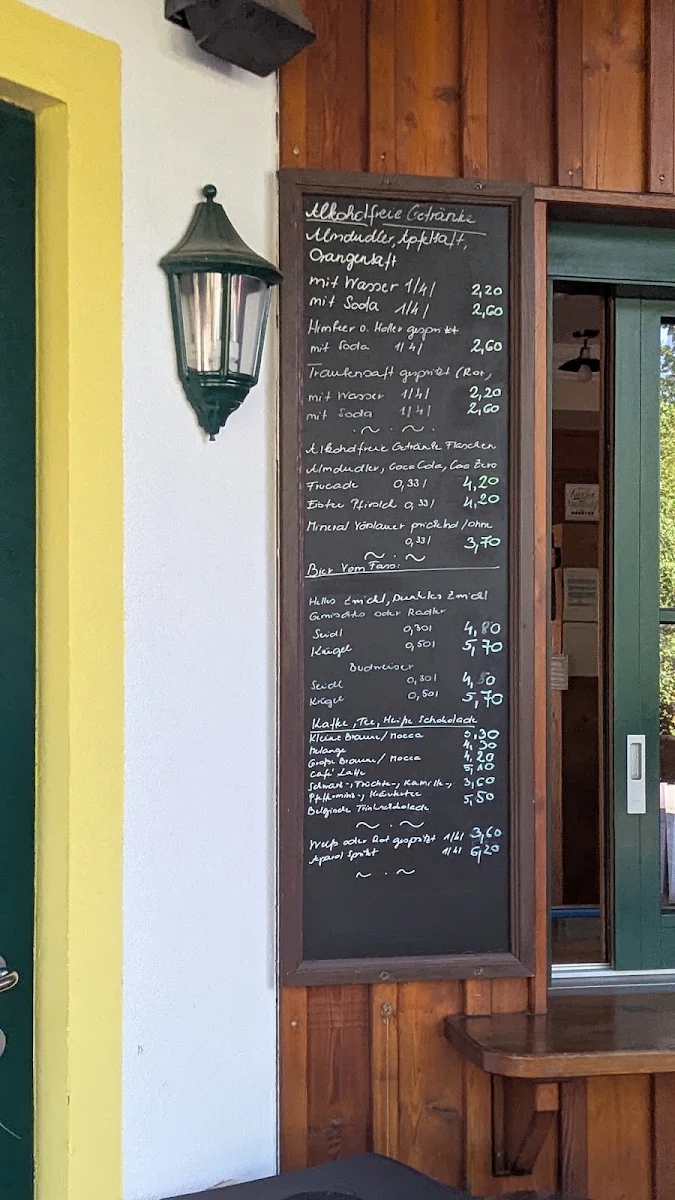 Alkoholfreie Getränke
Almdudler, Apfelsaft,
Orangensaft
mit Wasser 1/4 l 2,20
mit Soda 1/4 l 2,60
Himbeer o. Holler gespritzt
mit Soda 1/4 l 2,60
Traubensaft gespritzt (Rot,
mit Wasser 1/4 l 2,20
mit Soda 1/4 l 2,60
Alkoholfreie Getränke Flaschen
Almdudler, Coca Cola, Coca Zero
Frucade 0,33 l 4,20
Eistee Pfirsich 0,33 l 4,20
Mineral Vöslauer prickelnd / ohne
0,33 l 3,70
Bier vom Fass:
Helles Zwickl, Dunkles Zwickl
Gemischtes oder Radler
Seidl 0,30 l 4,80
Krügel 0,50 l 5,70
Budweiser
Seidl 0,30 l 4,50
Krügel 0,50 l 5,70
Kaffee, Tee, Heiße Schokolade
Kleiner Brauner / Mocca 3,30
Melange 4,30
Großer Brauner / Mocca 4,20
Café Latte 5,10
Schwarz-, Früchte-, Kamille-, 3,60
Pfefferminz-, Kräutertee
Belgische Trinkschokolade 5,50
Weiß oder Rot gespritzt 1/4 l 3,60
Aperol Spritzt 1/4 l 6,20